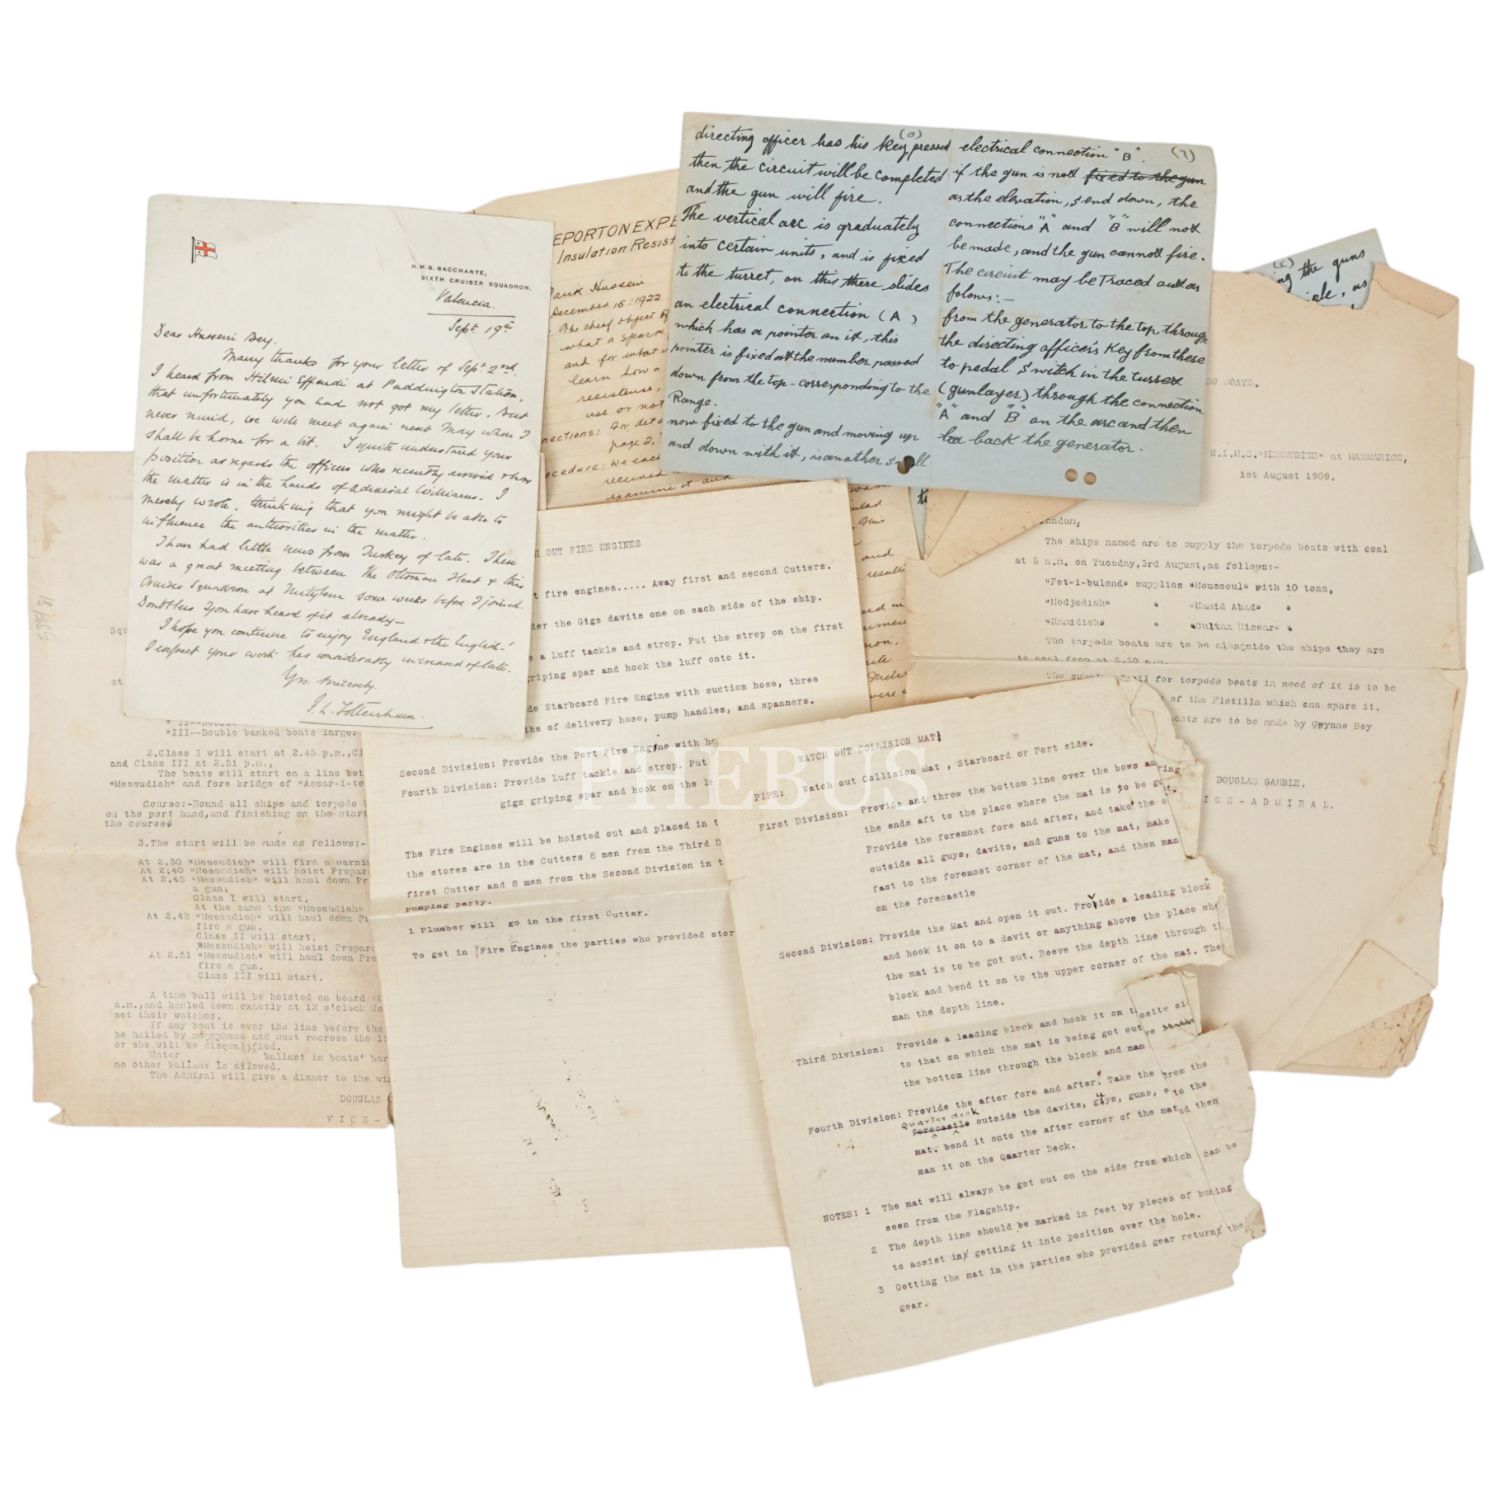 H.M.S. BACCHANTE,
SIXTH CRUISER SQUADRON.
Valencia.
Sept. 19th
Dear Husseni Bey.
Many thanks for your letter of Sept. 2nd.
I heard from Hilmi Effendi at Paddington Station,
that unfortunately you had not got my letter. But
never mind, we will meet again next May when I
shall be home for a bit. I quite understand your
position as regards the officers who recently arrived & how
the matter is in the hands of Admiral Williams. I
merely wrote, thinking that you might be able to
influence the authorities in the matter.
I have had little news from Turkey of late. There
was a great meeting between the Ottoman Fleet & this
Cruiser Squadron at Mitylene some weeks before I joined.
Doubtless you have heard of it already—
I hope you continue to enjoy England & the English!
I expect your work has considerably increased of late.
Yrs. sincerely.
F. L. Tottenham.
EPORT ON EXPE
Insulation Resist
Hussein
December 15: 1922
The chief object
what a spark
and for what
learn how a
resistance,
use or not
nections:
page 2,
ocedure: We each
received
examine it and
(6)
directing officer has his key pressed
then the circuit will be completed
and the gun will fire.
The vertical arc is graduately
into certain units, and is fixed
to the turret, on this there slides
an electrical connection (A)
which has a pointer on it, this
pointer is fixed at the number passed
down from the top - corresponding to the
Range.
now fixed to the gun and moving up
and down with it, is another small
(7)
electrical connection "B".
if the gun is not fixed to the gun
as the elevation, send down, the
connections "A" and "B" will not
be made, and the gun cannot fire.
The circuit may be Traced out as
folows:-
from the generator to the top through
the directing officer's Key from there
to pedal switch in the turret
(gunlayer) through the connection
"A" and "B" on the arc and then
back the generator.
the guns
DO BOATS.
H.I.M.S."MESSUDIEH" at MARMARICE,
1st August 1909.
andum,
The ships named are to supply the torpedo boats with coal
at 6 a.m. on Tuesday,3rd August,as follows:-
"Fet-i-bulend" supplies "Moussoul" with 10 tons,
"Medjedieh" " "Hamid Abad" "
"Hamidieh" " "Sultan Hissar" "
The torpedo boats are to be alongside the ships they are
to coal from at 5.30 a.m.
The for torpedo boats in need of it is to be
of the Flotilla which can spare it.
are to be made by Gwynne Bey
DOUGLAS GAMBLE.
ICE-ADMIRAL.
539/18
Squ
st
"II--Double
"III--Double banked boats larger
2.Class I will start at 2.45 p.m.,Cl
and Class III at 2.51 p.m.,
The boats will start on a line bet
"Messudieh" and fore bridge of "Assar-i-te
Course:-Round all ships and torpedo
on the port hand,and finishing on the start
the course
3.The start will be made as follows:-
At 2.30 "Messudieh" will fire a warnin
At 2.40 "Messudieh" will hoist Prepar
At 2.45 "Messudieh" will haul down Pr
a gun.
Class I will start.
At the same time "Messudieh"
At 2.48 "Messudieh" will haul down P
fire a gun.
Class II will start.
"Messudieh" will hoist Prepar
At 2.51 "Messudieh" will haul down Pre
fire a gun.
Class III will start.
A time ball will be hoisted on board
a.m.,and hauled down exactly at 12 o'clock
set their watches.
If any boat is over the line before the
be hailed by megaphone and must recross the li
or she will be disqualified.
Water ballast in boats' bar
no other ballast is allowed.
The Admiral will give a dinner to the wi
DOUGLAS
VICE-
H OUT FIRE ENGINES
t fire engines..... Away first and second Cutters.
der the Gigs davits one on each side of the ship.
e a Luff tackle and strop. Put the strop on the first
griping spar and hook the luff onto it.
de Starboard Fire Engine with suction hose, three
hs of delivery hose, pump handles, and spanners.
Second Division: Provide the Port Fire Engine with ho
Fourth Division: Provide Luff tackle and strop. Put
gigs griping spar and hook on the l
The Fire Engines will be hoisted out and placed in t
the stores are in the Cutters 8 men from the Third D
first Cutter and 8 men from the Second Division in t
pumping party.
1 Plumber will go in the first Cutter.
To get in Fire Engines the parties who provided stor
PHEBUS
WATCH OUT COLLISION MAT
PIPE: Watch out Collision Mat , Starboard or Port side.
First Division: Provide and throw the bottom line over the bows an ring
the ends aft to the place where the mat is to be go
Provide the foremost fore and after, and take the e
outside all guys, davits, and guns to the mat, make
fast to the foremost corner of the mat, and then man
on the forecastle
Second Division: Provide the Mat and open it out. Provide a leading block
and hook it on to a davit or anything above the place whe
the mat is to be got out. Reeve the depth line through t
block and bend it on to the upper corner of the mat. The
man the depth line.
Third Division: Provide a leading block and hook it on t osite si
to that on which the mat is being got out ve
the bottom line through the block and man
Fourth Division: Provide the after fore and after. Take the from the
Quarter deck
forecastle outside the davits, guys, guns, e to the
mat. bend it onto the after corner of the mat nd then
man it on the Quarter Deck.
NOTES: 1 The mat will always be got out on the side from which can be
seen from the Flagship.
2 The depth line should be marked in feet by pieces of bunting
to assist in getting it into position over the hole.
3 Getting the mat in the parties who provided gear return the
gear.